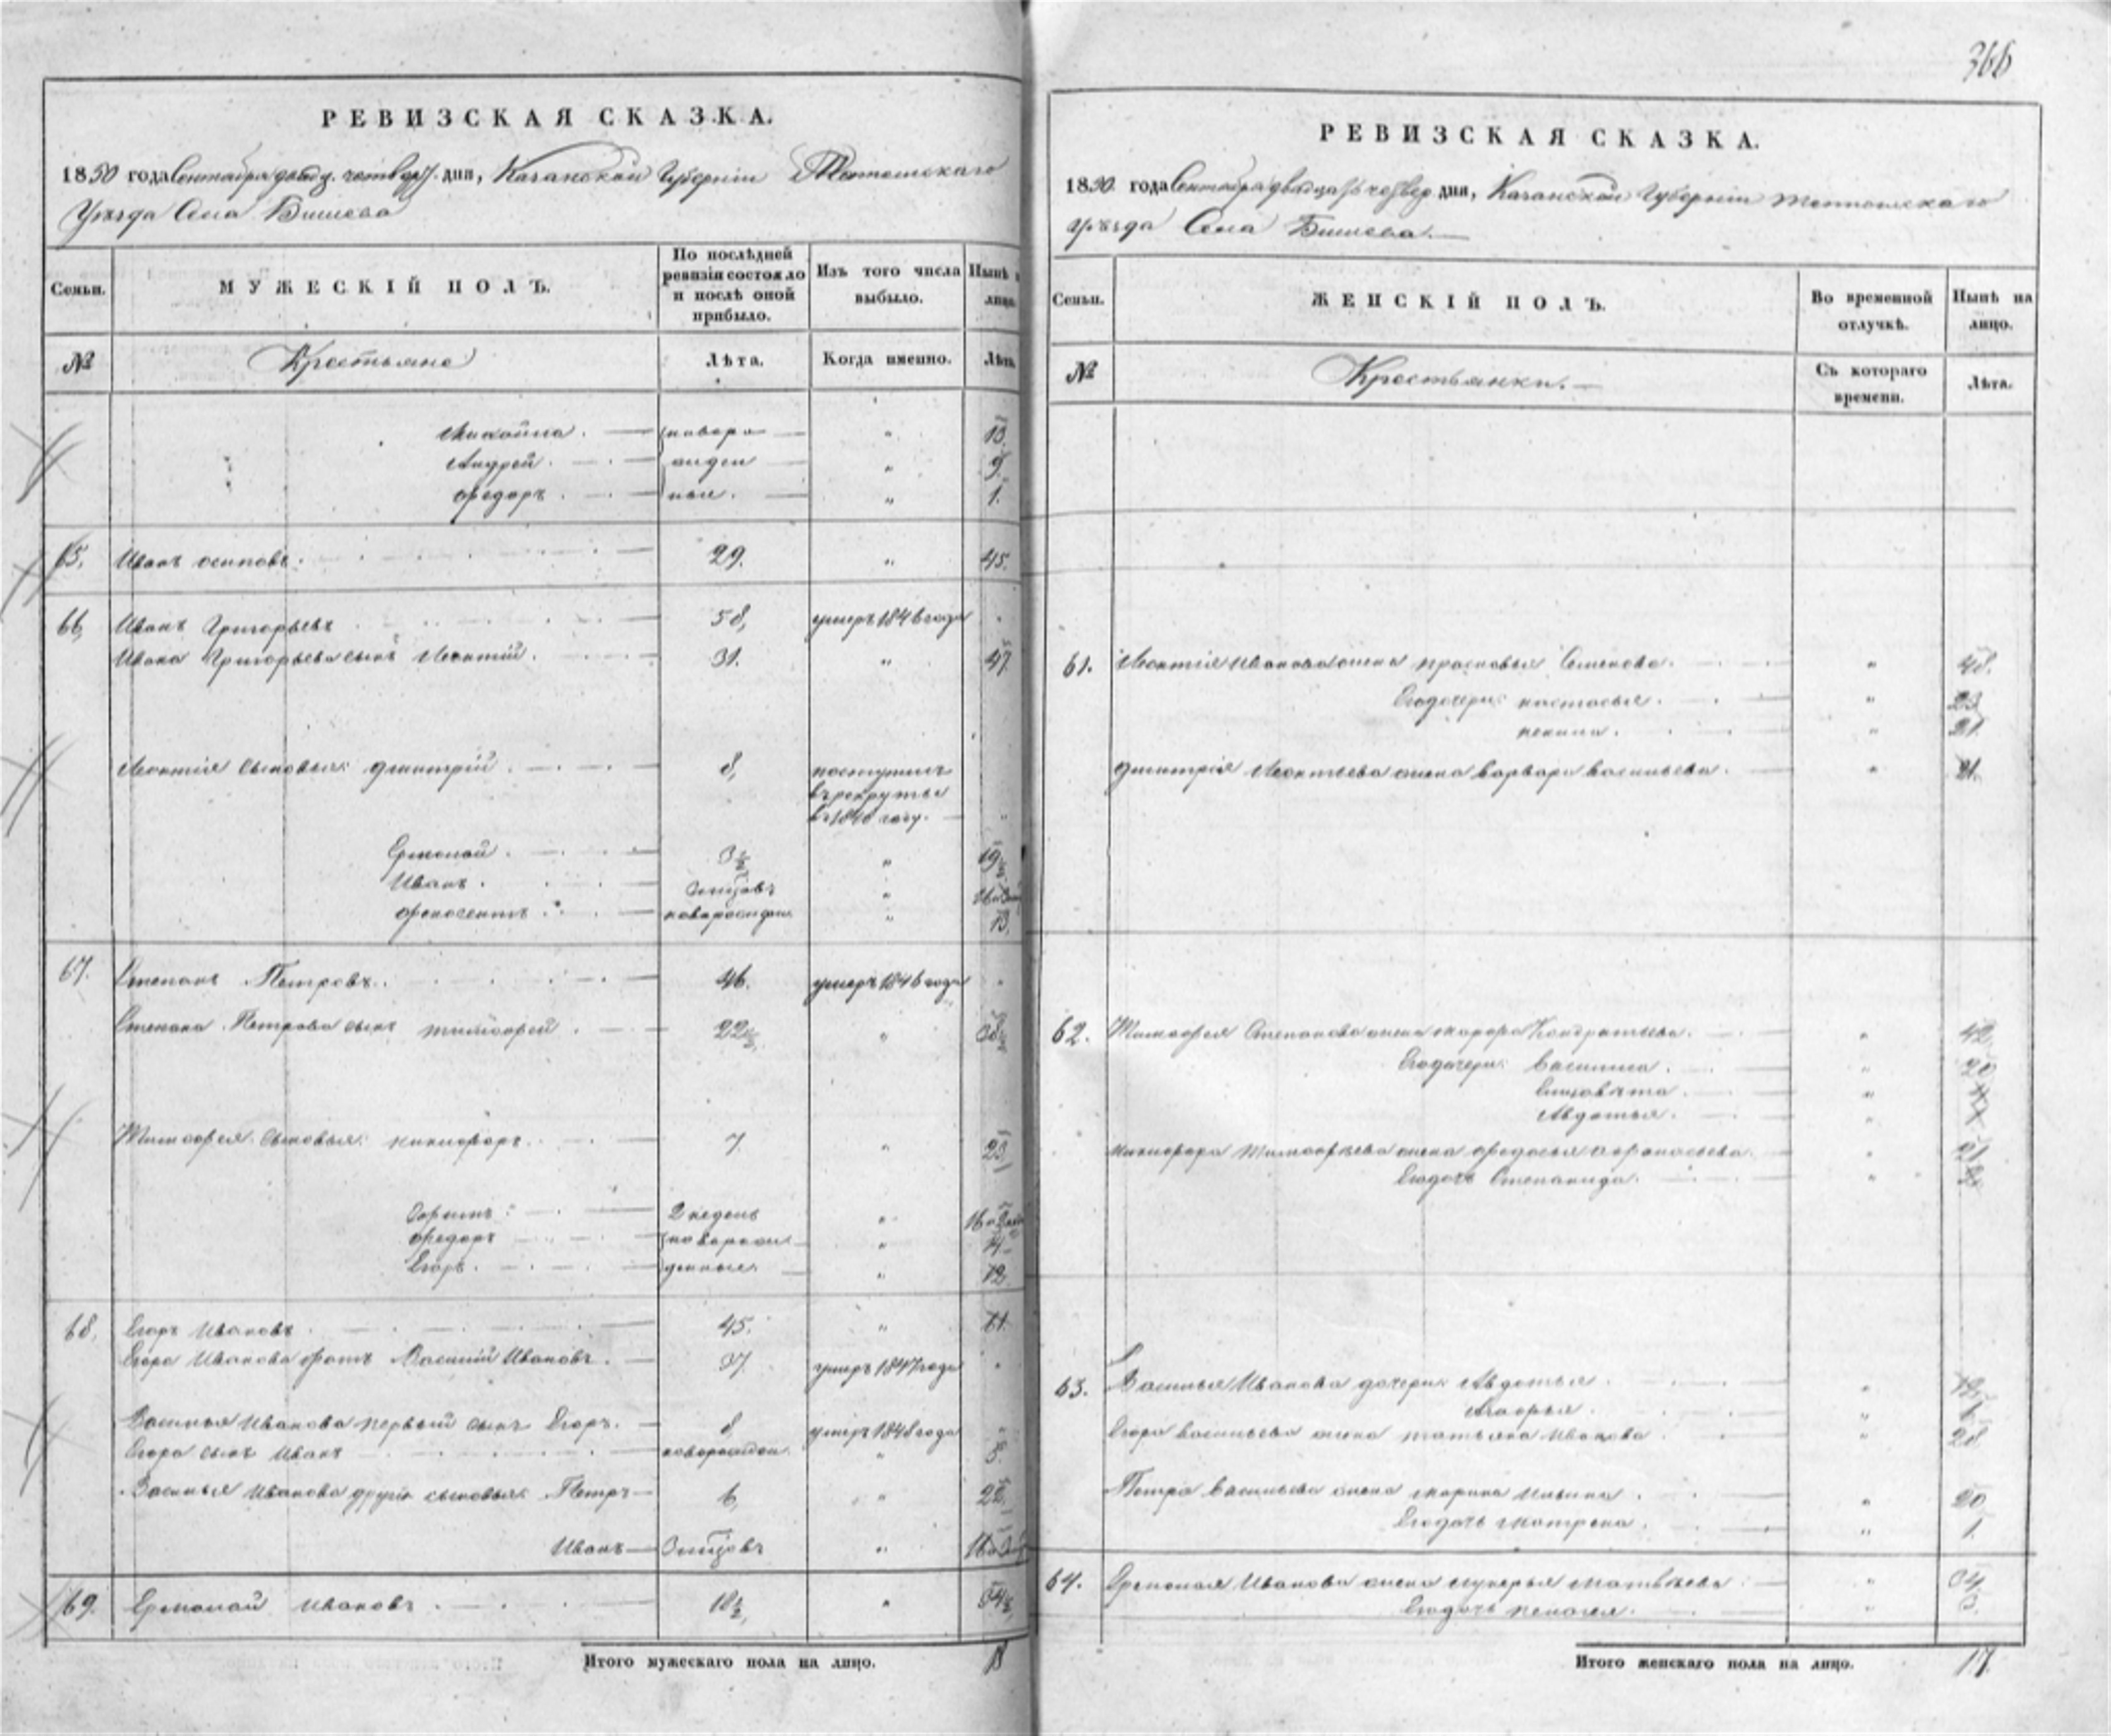 366
РЕВИЗСКАЯ СКАЗКА.
1850 года Сентября двадц. четверт. дня, Казанской Губерніи Тетюшскаго
Уѣзда Села Бишева
Семьи. МУЖЕСКІЙ ПОЛЪ. По послѣдней ревизіи состояло и послѣ оной прибыло. Изъ того числа выбыло. Нынѣ лицо.
№ Крестьяне Лѣта. Когда именно. Лѣта.
Микайла. новоро „ 13.
Андрей. жден „ 9.
Ѳедоръ. ные. „ 1.
65. Иванъ Осиповъ. 29. „ 45.
66. Иванъ Григорьевъ 58, умеръ 1846 года „
Ивана Григорьева сынъ Леонтій. 31. „ 47
Леонтія сыновья: Дмитрій. 8, поступилъ
въ рекруты
въ 1840 году. „
Ермолай. 3½ „ 19½
Иванъ. „
новорожден „ 13.
67. Степанъ Петровъ. 46. умеръ 1846 года „
Степана Петрова сынъ Тимофей. 22½ „ 38½
Тимофея сыновья: Никифоръ. 7. „ 23
2 недель „
Ѳедоръ новорож „ 14
Егоръ. денные. „ 12
68. Егоръ Ивановъ 45. „ 61
Егора Иванова братъ Василій Ивановъ. 37. умеръ 1847 года „
Василья Иванова первый сынъ Егоръ. 8 умеръ 1848 года „
Егора сынъ Иванъ новорожден. „ 5.
Василья Иванова другіе сыновья: Петръ 6 „ 22.
Иванъ „
69. Ермолай Ивановъ. 18½ „ 34½
Итого мужескаго пола на лицо. 18
РЕВИЗСКАЯ СКАЗКА.
1850 года Сентября двадцать четвер. дня, Казанской Губерніи Тетюшскаго
уѣзда Села Бишева.
Семьи. ЖЕНСКІЙ ПОЛЪ. Во временной отлучкѣ. Нынѣ на лицо.
№ Крестьянки. Съ котораго времени. Лѣта.
61. Леонтія Иванова жена Прасковья Семенова. „ 48.
Его дочери: Настасья. „ 23
„ 21.
Дмитрія Леонтьева жена Варвара Васильева. „ 21.
62. Тимофея Степанова жена Марфа Кондратьева. „ 42.
Его дочери: Василиса. „ 20
Елизавѣта. „
Авдотья. „
Никифора Тимофѣева жена Ѳедосья Афонасьева „ 21
Его дочь Степанида. „
63. Василья Иванова дочери: Авдотья. „
„
Егора Васильева жена Татьяна Иванова „ 28
Петра Васильева жена Марина Ильина. „ 20
Его дочь Матрена. „ 1.
64. Ермолая Иванова жена Лукерья Матвѣева „ 34.
Его дочь Пелагея. „ 3.
Итого женскаго пола на лицо. 17.